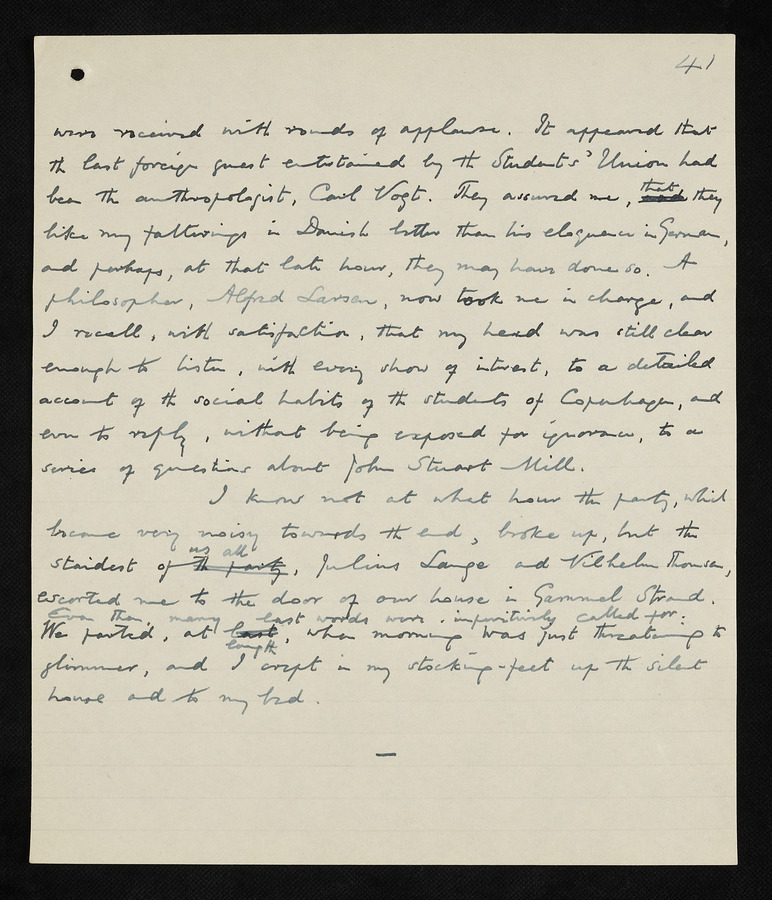 41
were received with rounds of applause. It appeared that
the last foreign guest entertained by the Students' Union had
been the anthropologist, Carl Vogt. They assured me, that they
like my falterings in Danish better than his eloquence in German,
and perhaps, at that late hour, they may have done so. A
philosopher, Alfred Larsen, now took me in charge, and
I recall, with satisfaction, that my head was still clear
enough to listen, with every show of interest, to a detailed
account of the social habits of the students of Copenhagen, and
even to reply, without being exposed for ignorance, to a
series of questions about John Stuart Mill.
I know not at what hour the party, which
became very noisy towards the end, broke up, but the
us all
staidest of the party, Julius Lange and Vilhelm Thomsen,
escorted me to the door of our house in Gammel Strand.
Even then, many last words were imperatively called for:
We parted, at last, when morning was just threatening to
length
glimmer, and I crept in my stocking-feet up the silent
house and to my bed.